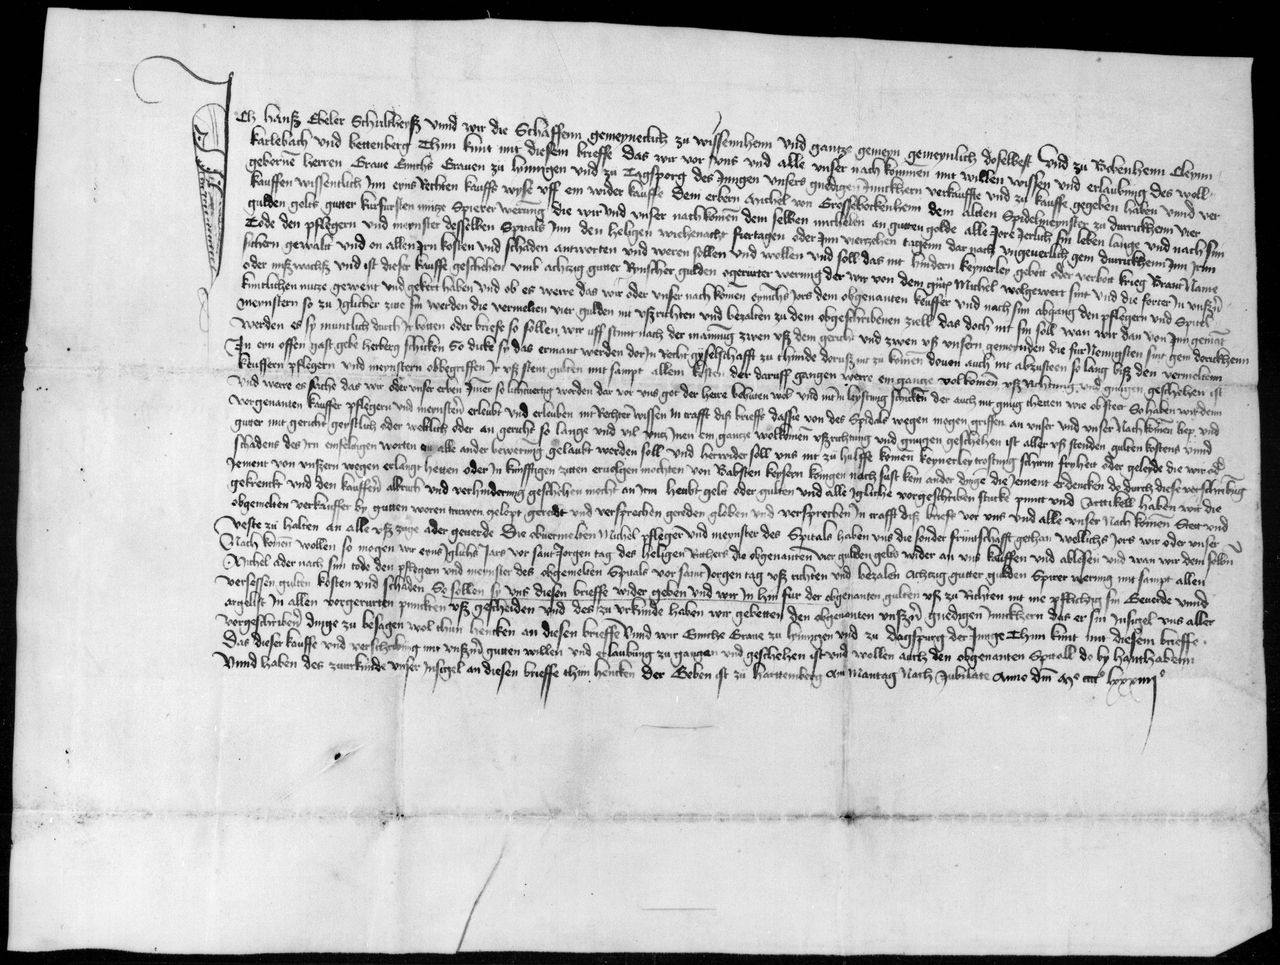 Ich hanß Ebeler Schultheyß vnnd wir die Scheffenn gemeynetlich zu wissennheim vnd gantze gemeyn gemeynlich doselbest vnd zu Bockenheim Cleynn
karlebach vnd bettenberg Thun kunt mit diesem brieffe das wir vor vns vnd alle vnser nach kommen mit willen wissen vnd erlaubung des woll
geborne herren Graue Emichs Grauen zu lyningen vnd zu Tagsporg des Jungen vnsers gnedigen Junckhern verkaufft vnd zu kauffe gegeben haben vnnd ver
kauffen wissentlich Jnn eyns Rechten kauffs wyse vff ein wider kauffe dem erbern Michel von Grossebockenheim dem alten Spidelmeynster zu durrickheim vier
gulden gelts gutter kurfursten muntze Spierer werung die wir vnd vnser nachkomen dem selben micheln an guttem golde alle Jore Jerlich sin leben lange vnd nach sim
Tode den pflegern vnd meynster desselben Spitals Jnn den heligen wichenacht fiertagen oder Jnn viertzehen tagenn dar nach vngeuerlich gem durrickheim Jnn Jrnn
sichern gewalt vnd on allen Jrn kosten vnd schaden antworten vnd weren sollen vnd wollen vnd soll das nit hindern keynerley gebott oder verbott krieg Brant Name
oder mißwachß vnd ist dieser kauffe geschehen vmb achtzig gutter Rynscher gulden ogerurter werung der wir von dem gnanten Michel wolgewert sint vnd die forter Jn vnßern
kuntlichen nutze gewent vnd gekert haben vnd ob es werre das wir oder vnser nach komen eynichs Jors dem obgenanten keuffer vnd nach sim abgang den pflegern vnd Spitel
meynstern so zu Jglicher zitte sin werden die vermelten vier gulden nit vßrichten vnd bezalten zu dem obgeschribenen ziell das doch nit sin soll wan wir dan von Jnn gemant
werden es sy muntlich durch Jr botten oder brieffe so sollen wir vff stunt nach der manung zwen vß dem gericht vnd zwen vß vnsern gemeynden die fur nemigsten sint gem dorickheim
Jn eyn offen gast gebe herberg schicken So dicke sy das ermant werden dorJn Recht gyselschafft zu thunde doruß nit zu komen douon auch nit abzusteen so lang biß den vermeltenn
keuffern pflegern vnd meynstern obbegriffen Jr vß stent gulten mit sampt allem kosten der daruff gangen werre ein gantze volkomen vß Richtung vnd gnugen geschehen ist
vnd werre es sache das wir oder vnser erben Jmer so lichtuertig worden dar vor vns got der herre behuten wol vnd nit Jn leystung schickten der auch nit gnug thetten wie obsteet So haben wir denn
vorgenanten kauffer pflegern vnd meynstern erlaubt vnd erleuben mit Rechter wissen Jn crafft diß brieffs dassie von des Spidals wegen mogen griffen an vnser vnd vnser Nach komen liep vnnd
gutter mit gericht geystlich oder weltlich oder an gericht so lange vnd vil biß Jnen ein gantze wolkomen vßrichtung vnd gnugen geschehen ist aller vß stenden gulten kostens vnnd
schadens des Jrn einfeltigen worten on alle ander bewerung gelaubt werden soll vnd herwider soll vns nit zu hulffe komen keynerley trostung schirm fryheit oder geleyde die wir ader
Jement von vnßern wegen erlangt hetten oder Jn kunfftigen zitten eruolgen mochten von Babsten keysern konigen noch sust kein ander dinge die Jement erdencken do durch diese verschribung
gekrenckt vnd den kauffern abbruch vnd verhinderung geschehen mocht an Jrm heubt gelt oder gulten vnd alle Jgliche vorgeschriben stucke punct vnd Artickell haben wir die
obgemelten verkauffer by gutten woren truwen gelopt geredt vnd versprochen gereden globen vnd versprechen Jn crafft diß brieffs vor vns vnd alle vnser Nach komen Stett vnd
veste zu halten an alle vß zuge ader geuerde Die obuermelten Michel pfleger vnd meynster des Spitals haben vns die sonder fruntschafft gethan wellichs Jors wir oder vnser
Nach komen wollen so mogen wir eyns Jglichs Jars vor sant Jorgen tag des heligen Ritthers die obgenanten vier gulden gelts wider an vns kauffen vnd ablesen vnd wan wir dem selben
Michel ader nach sim tode den pflegern vnd meynster des obgemelten Spitals vor sant Jorgen tag vß richten vnd bezalen Achtzig gutter gulden Spirer werung mit sampt allen
versessen gulten kosten vnd schaden So sollen sy vns diesen brieffe wider geben vnd wir Jn hin fur der obgenanten gulten vß zu Richten nit me pflichtig sin Geuerde vnnd
argelist Jn allen vorgerurten puncken vß gescheiden vnd des zu vrkunde haben wir gebetten den obgenanten vnßern gnedigen Junckhern das er sin Jnsigel vns aller
vorgeschriben dinge zu besagen wol thun hencken an diesen brieffe Vnnd wir Emiche Graue zu lyningen vnd zu dagspurg der Junge Thun kunt mit diesem brieffe
Das dieser kauffe vnd verschribung mit vnßerm gutten willen vnd erlaubung zu gangen vnd geschehen ist vnd wollen auch den obgenanten Spitall do by hanthabenn
Vnnd haben des zu vrkunde vnser Jnsigel an diesen brieffe thun hencken der Geben ist zu hartemberg Am Mantag Nach Jubilate Anno dm Mo cccco lxxxiiijo